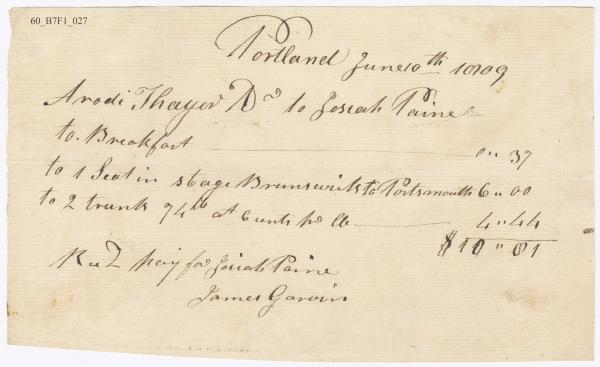 60_B7F1_027
Portland June 10th 1809
Arodi Thayer Dr to Josiah Paine
to Breakfast 0" 37
to 1 Seat in stage Brunswick to Portsmouth 6" 00
to 2 trunk 74 lb at 6 cents pr lb 4" 44
$10" 81
Recd pay for Josiah Paine
James Garvin